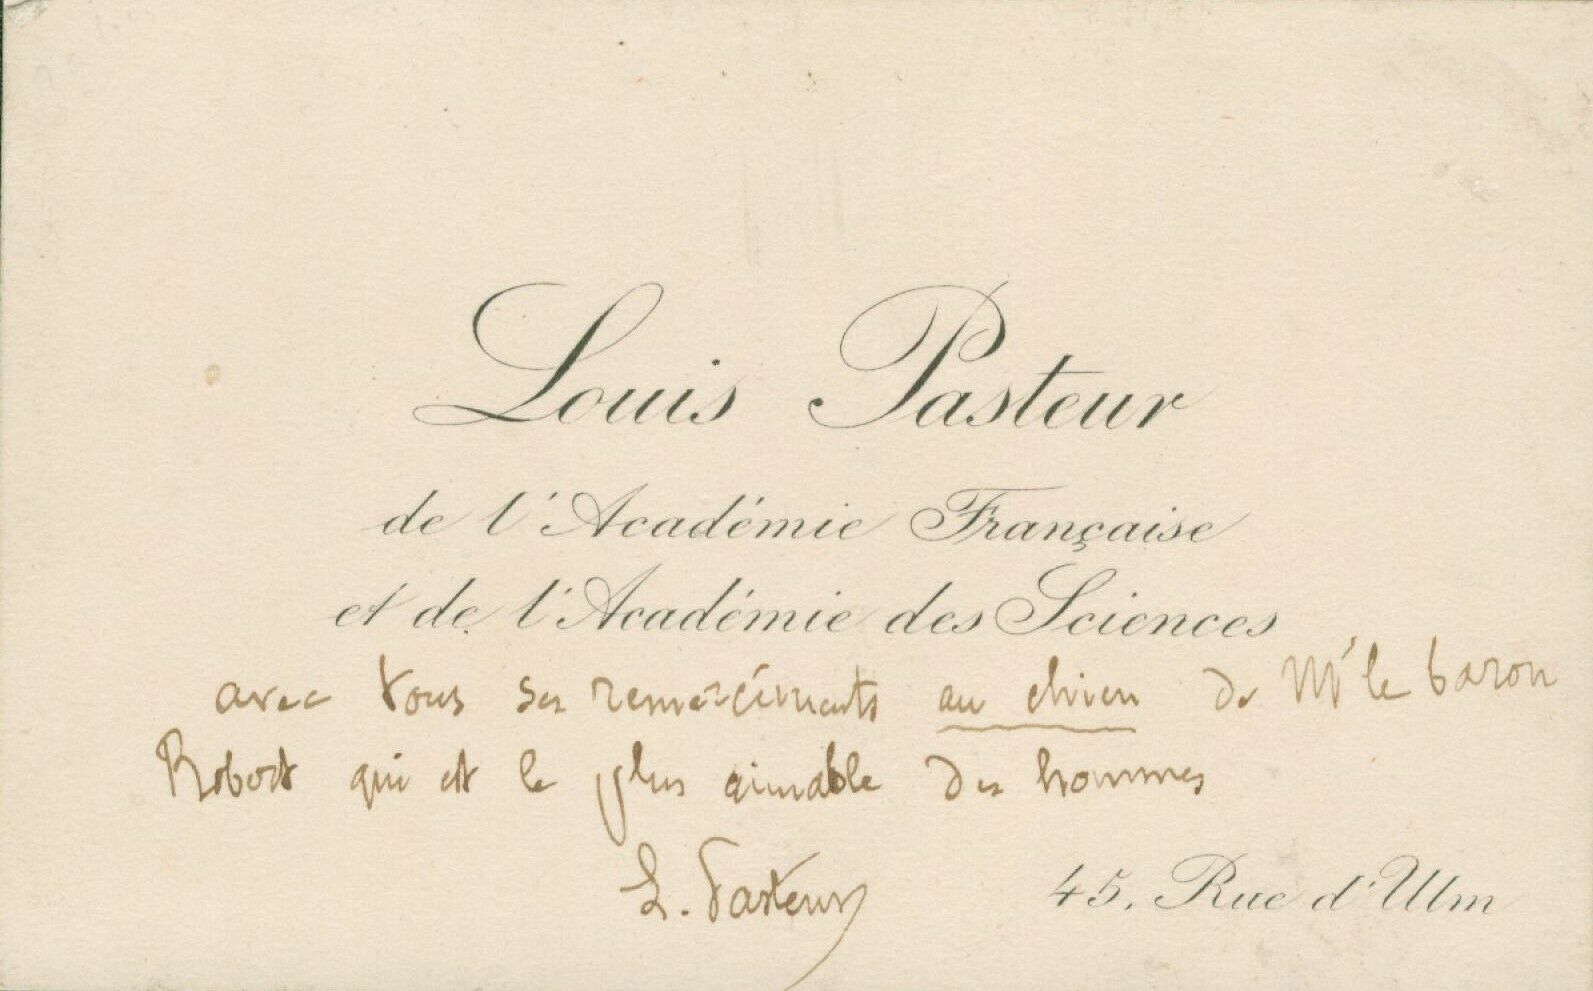 Louis Pasteur
de l'Académie Française
et de l'Académie des Sciences
avec tous ses remerciments au chien de Mr le baron
Robert qui est le plus aimable des hommes
L. Pasteur
45, Rue d'Ulm